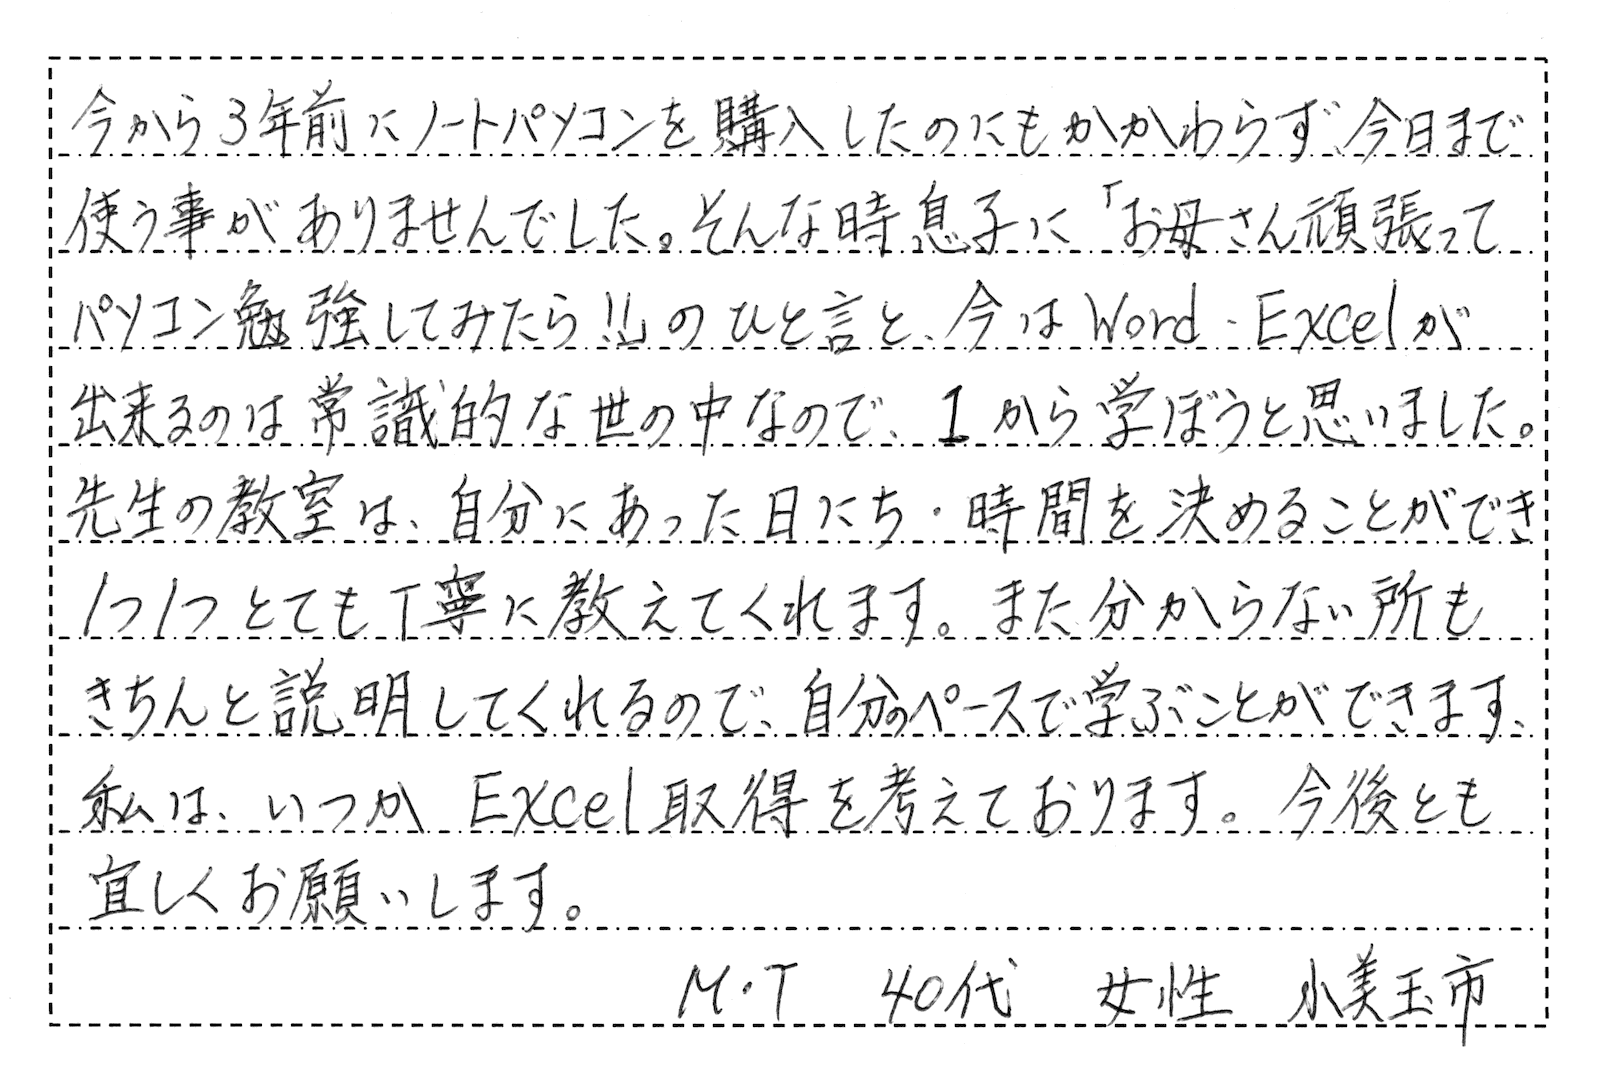 今から3年前にノートパソコンを購入したのにもかかわらず、今日まで
使う事がありませんでした。そんな時息子に「お母さん頑張って
パソコン勉強してみたら!!」のひと言と、今はWord・Excelが
出来るのは常識的な世の中なので、1から学ぼうと思いました。
先生の教室は、自分にあった日にち・時間を決めることができ
1つ1つとても丁寧に教えてくれます。また分からない所も
きちんと説明してくれるので、自分のペースで学ぶことができます、
私は、いつかExcel取得を考えております。今後とも
宜しくお願いします。
M・T 40代 女性 小美玉市